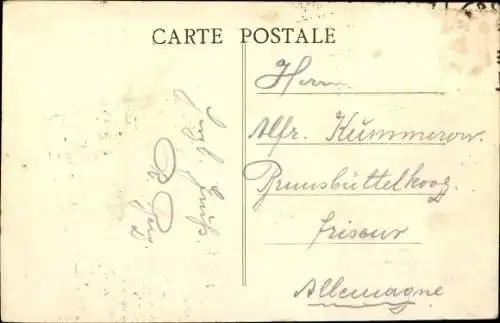 CARTE POSTALE
Herrn
Alfr. Kummerow.
Brunsbüttelkoog.
friseur
Allemagne
Hrzl. Gruß.